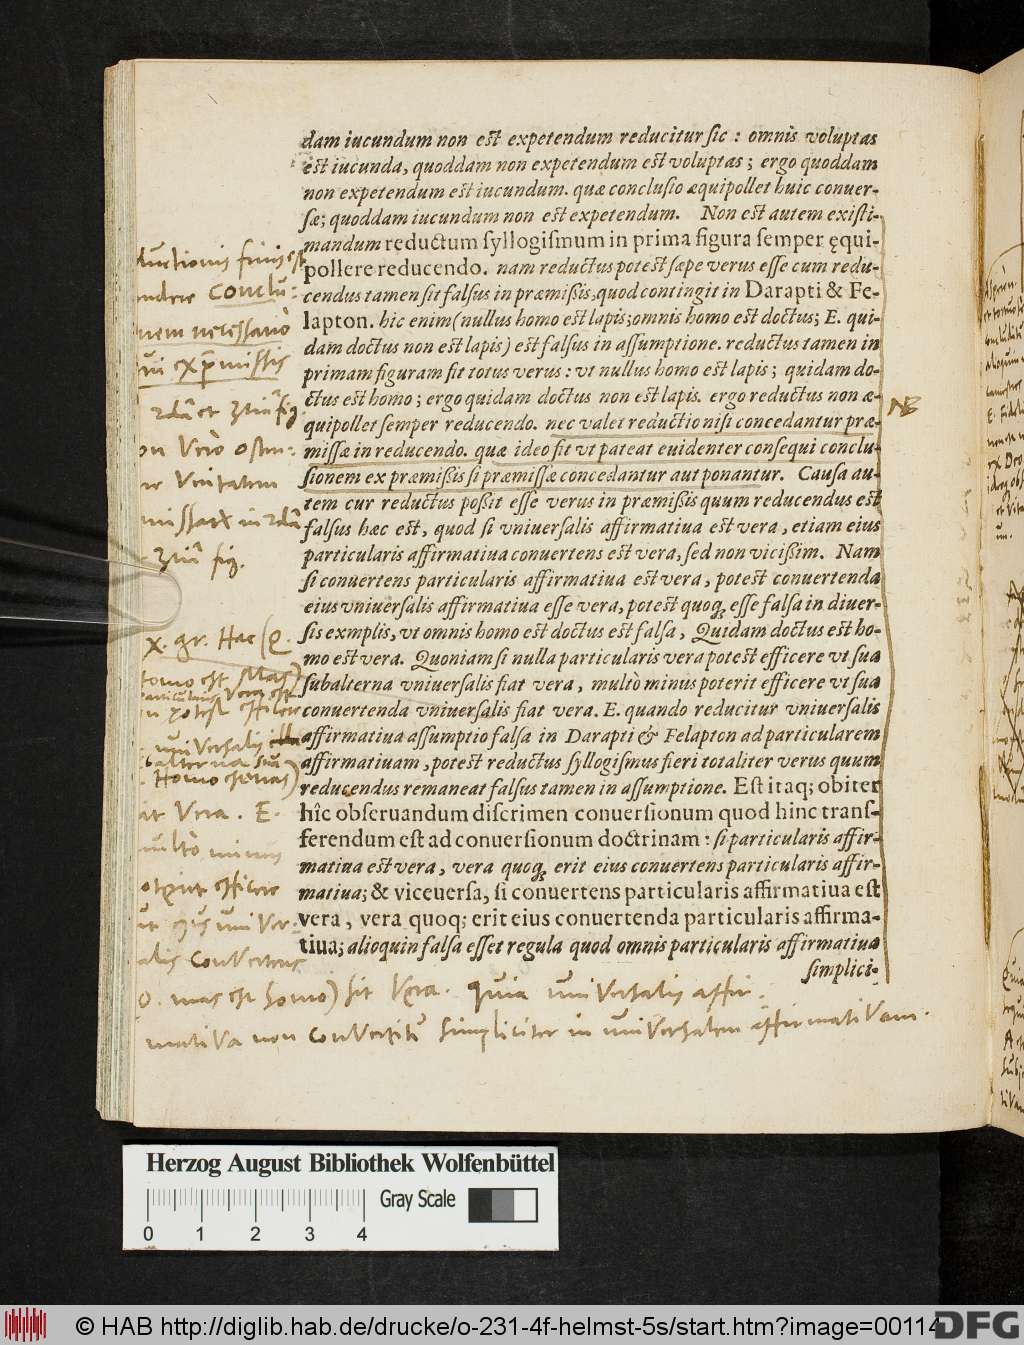 dam iucundum non est expetendum reducitur sic : omnis voluptas
est iucunda, quoddam non expetendum est voluptas ; ergo quoddam
non expetendum est iucundum. quæ conclusio æquipollet huic conuer-
sæ; quoddam iucundum non est expetendum. Non est autem existi-
mandum reductum syllogismum in prima figura semper ęqui-
pollere reducendo. nam reductus potest sæpe verus esse cum redu-
cendus tamen sit falsus in præmißis, quod contingit in Darapti & Fe-
lapton. hic enim (nullus homo est lapis; omnis homo est doctus; E. qui-
dam doctus non est lapis) est falsus in assumptione. reductus tamen in
primam figuram fit totus verus : vt nullus homo est lapis ; quidam do-
ctus est homo ; ergo quidam doctus non est lapis. ergo reductus non æ-
quipollet semper reducendo. nec valet reductio nisi concedantur præ-
missæ in reducendo. quæ ideo fit vt pateat euidenter consequi conclu-
sionem ex præmißis si præmissæ concedantur aut ponantur. Causa au-
tem cur reductus poßit esse verus in præmißis quum reducendus est
falsus hæc est, quod si vniuersalis affirmatiua est vera, etiam eius
particularis affirmatiua conuertens est vera, sed non vicißim. Nam
si conuertens particularis affirmatiua est vera, potest conuertenda
eius vniuersalis affirmatiua esse vera, potest quoq; esse falsa in diuer-
sis exmplis, vt omnis homo est doctus est falsa, Quidam doctus est ho-
mo est vera. Quoniam si nulla particularis vera potest efficere vt sua
subalterna vniuersalis fiat vera, multò minus poterit efficere vt sua
conuertenda vniuersalis fiat vera. E. quando reducitur vniuersalis
affirmatiua assumptio falsa in Darapti & Felapton ad particularem
affirmatiuam, potest reductus syllogismus fieri totaliter verus quum
reducendus remaneat falsus tamen in assumptione. Est itaq; obiter
hîc obseruandum discrimen conuersionum quod hinc trans-
ferendum est ad conuersionum doctrinam : si particularis affir-
matiua est vera, vera quoq; erit eius conuertens particularis affir-
matiua; & viceuersa, si conuertens particularis affirmatiua est
vera, vera quoq; erit eius conuertenda particularis affirma-
tiua; alioquin falsa esset regula quod omnis particularis affirmatiua
simplici-
NB
ductionis finis est
ndere conclu:
nem necessario
ex præmissis
on Vero osten:
re Veritatem
fig.
x. gr. Hæc (Q.
homo est Mas)
particularis Vera est
n potest efficere
uniVersalis
balterna
Homo est mas)
at Vera. E.
multò minus
oterit efficere
ut eius uniVer-
alis ConVertens
O. mas est homo) sit Vera. Quia uniVersalis affir-
matiVa non ConVertitur simpliciter in uniVersalem affirmatiVam.
Herzog August Bibliothek Wolfenbüttel
Gray Scale
0 1 2 3 4
© HAB http://diglib.hab.de/drucke/o-231-4f-helmst-5s/start.htm?image=00114
DFG